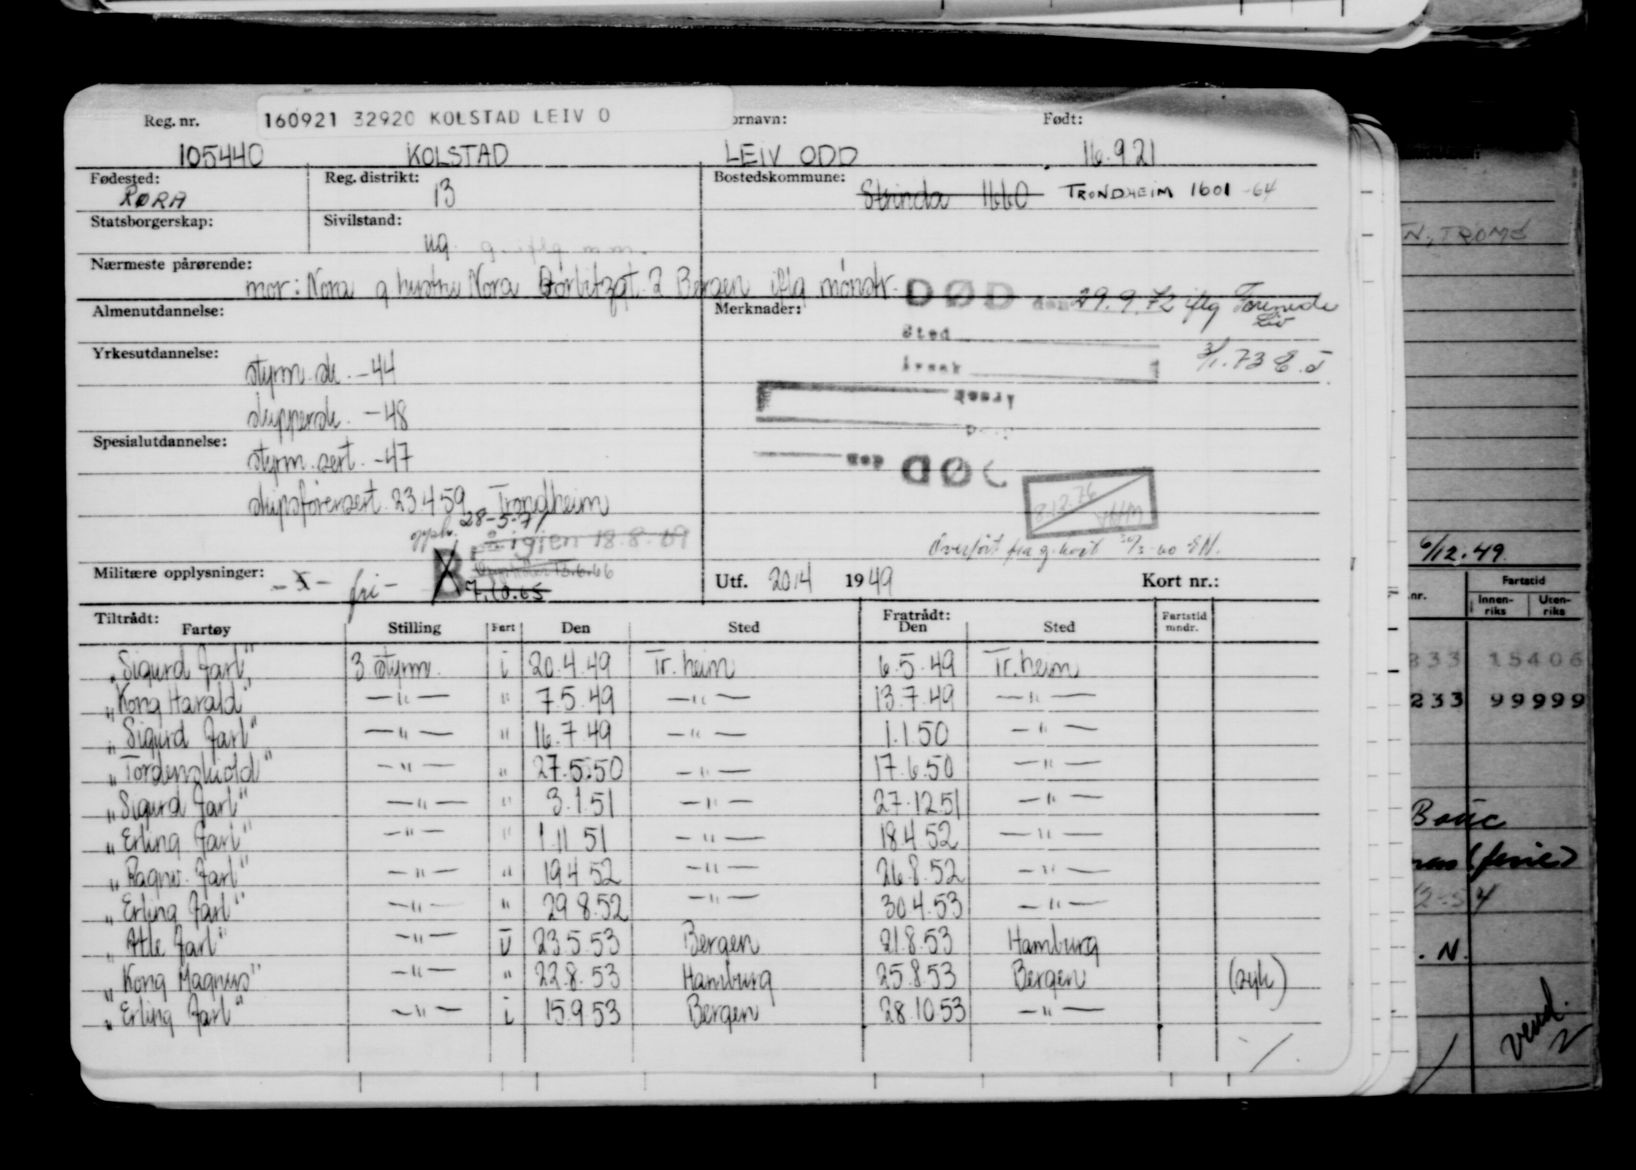 Reg. nr. 160921 32920 KOLSTAD LEIV O ornavn: Født:
105440 KOLSTAD LEIV ODD 16.9.21
Fødested: Reg. distrikt: Bostedskommune:
RØRA 13 Strinda 1660 TRONDHEIM 1601 -64
Statsborgerskap: Sivilstand:
ug. g. iflg m.m.
Nærmeste pårørende:
mor: Nora g hustru Nora 2 Bergen iflg mønstr.
DØD den 29.9.72 iflg Forenede Liv
Almenutdannelse: Merknader:
Sted
Årsak
3/1.73
Yrkesutdannelse:
styrm.sk. -44
skippersk. -48
Årsak
Spesialutdannelse:
styrm.sert. -47
den DØD
skipsførersert. 23.4.59 Trondheim
28-5-71
igjen 18.8.69
Overført fra g. kort
Militære opplysninger: -X- fri - B 7.10.65
Utf. 20/4 1949 Kort nr.:
Tiltrådt: Fratrådt:
Fartøy Stilling Fart Den Sted Den Sted Fartstid mndr.
"Sigurd Jarl" 3 styrm. i 20.4.49 Tr.heim 6.5.49 Tr.heim
"Kong Harald" —"— " 7.5.49 —"— 13.7.49 —"—
"Sigurd Jarl" —"— " 16.7.49 —"— 1.1.50 —"—
"Tordenskiold" —"— " 27.5.50 —"— 17.6.50 —"—
"Sigurd Jarl" —"— " 3.1.51 —"— 27.12.51 —"—
"Erling Jarl" —"— " 1.11 51 —"— 18.4.52 —"—
"Ragnv. Jarl" —"— " 19.4 52 —"— 26.8.52 —"—
"Erling Jarl" —"— " 29.8.52 —"— 30.4.53 —"—
"Atle Jarl" —"— u 23.5.53 Bergen 21.8.53 Hamburg
"Kong Magnus" —"— " 22.8.53 Hamburg 25.8.53 Bergen (syk)
"Erling Jarl" —"— i 15.9.53 Bergen 28.10.53 —"—
N, TROMS
6/12.49
nr. Fartstid
Innen-riks Uten-riks
233 15406
233 99999
(ferie)
N.
vend